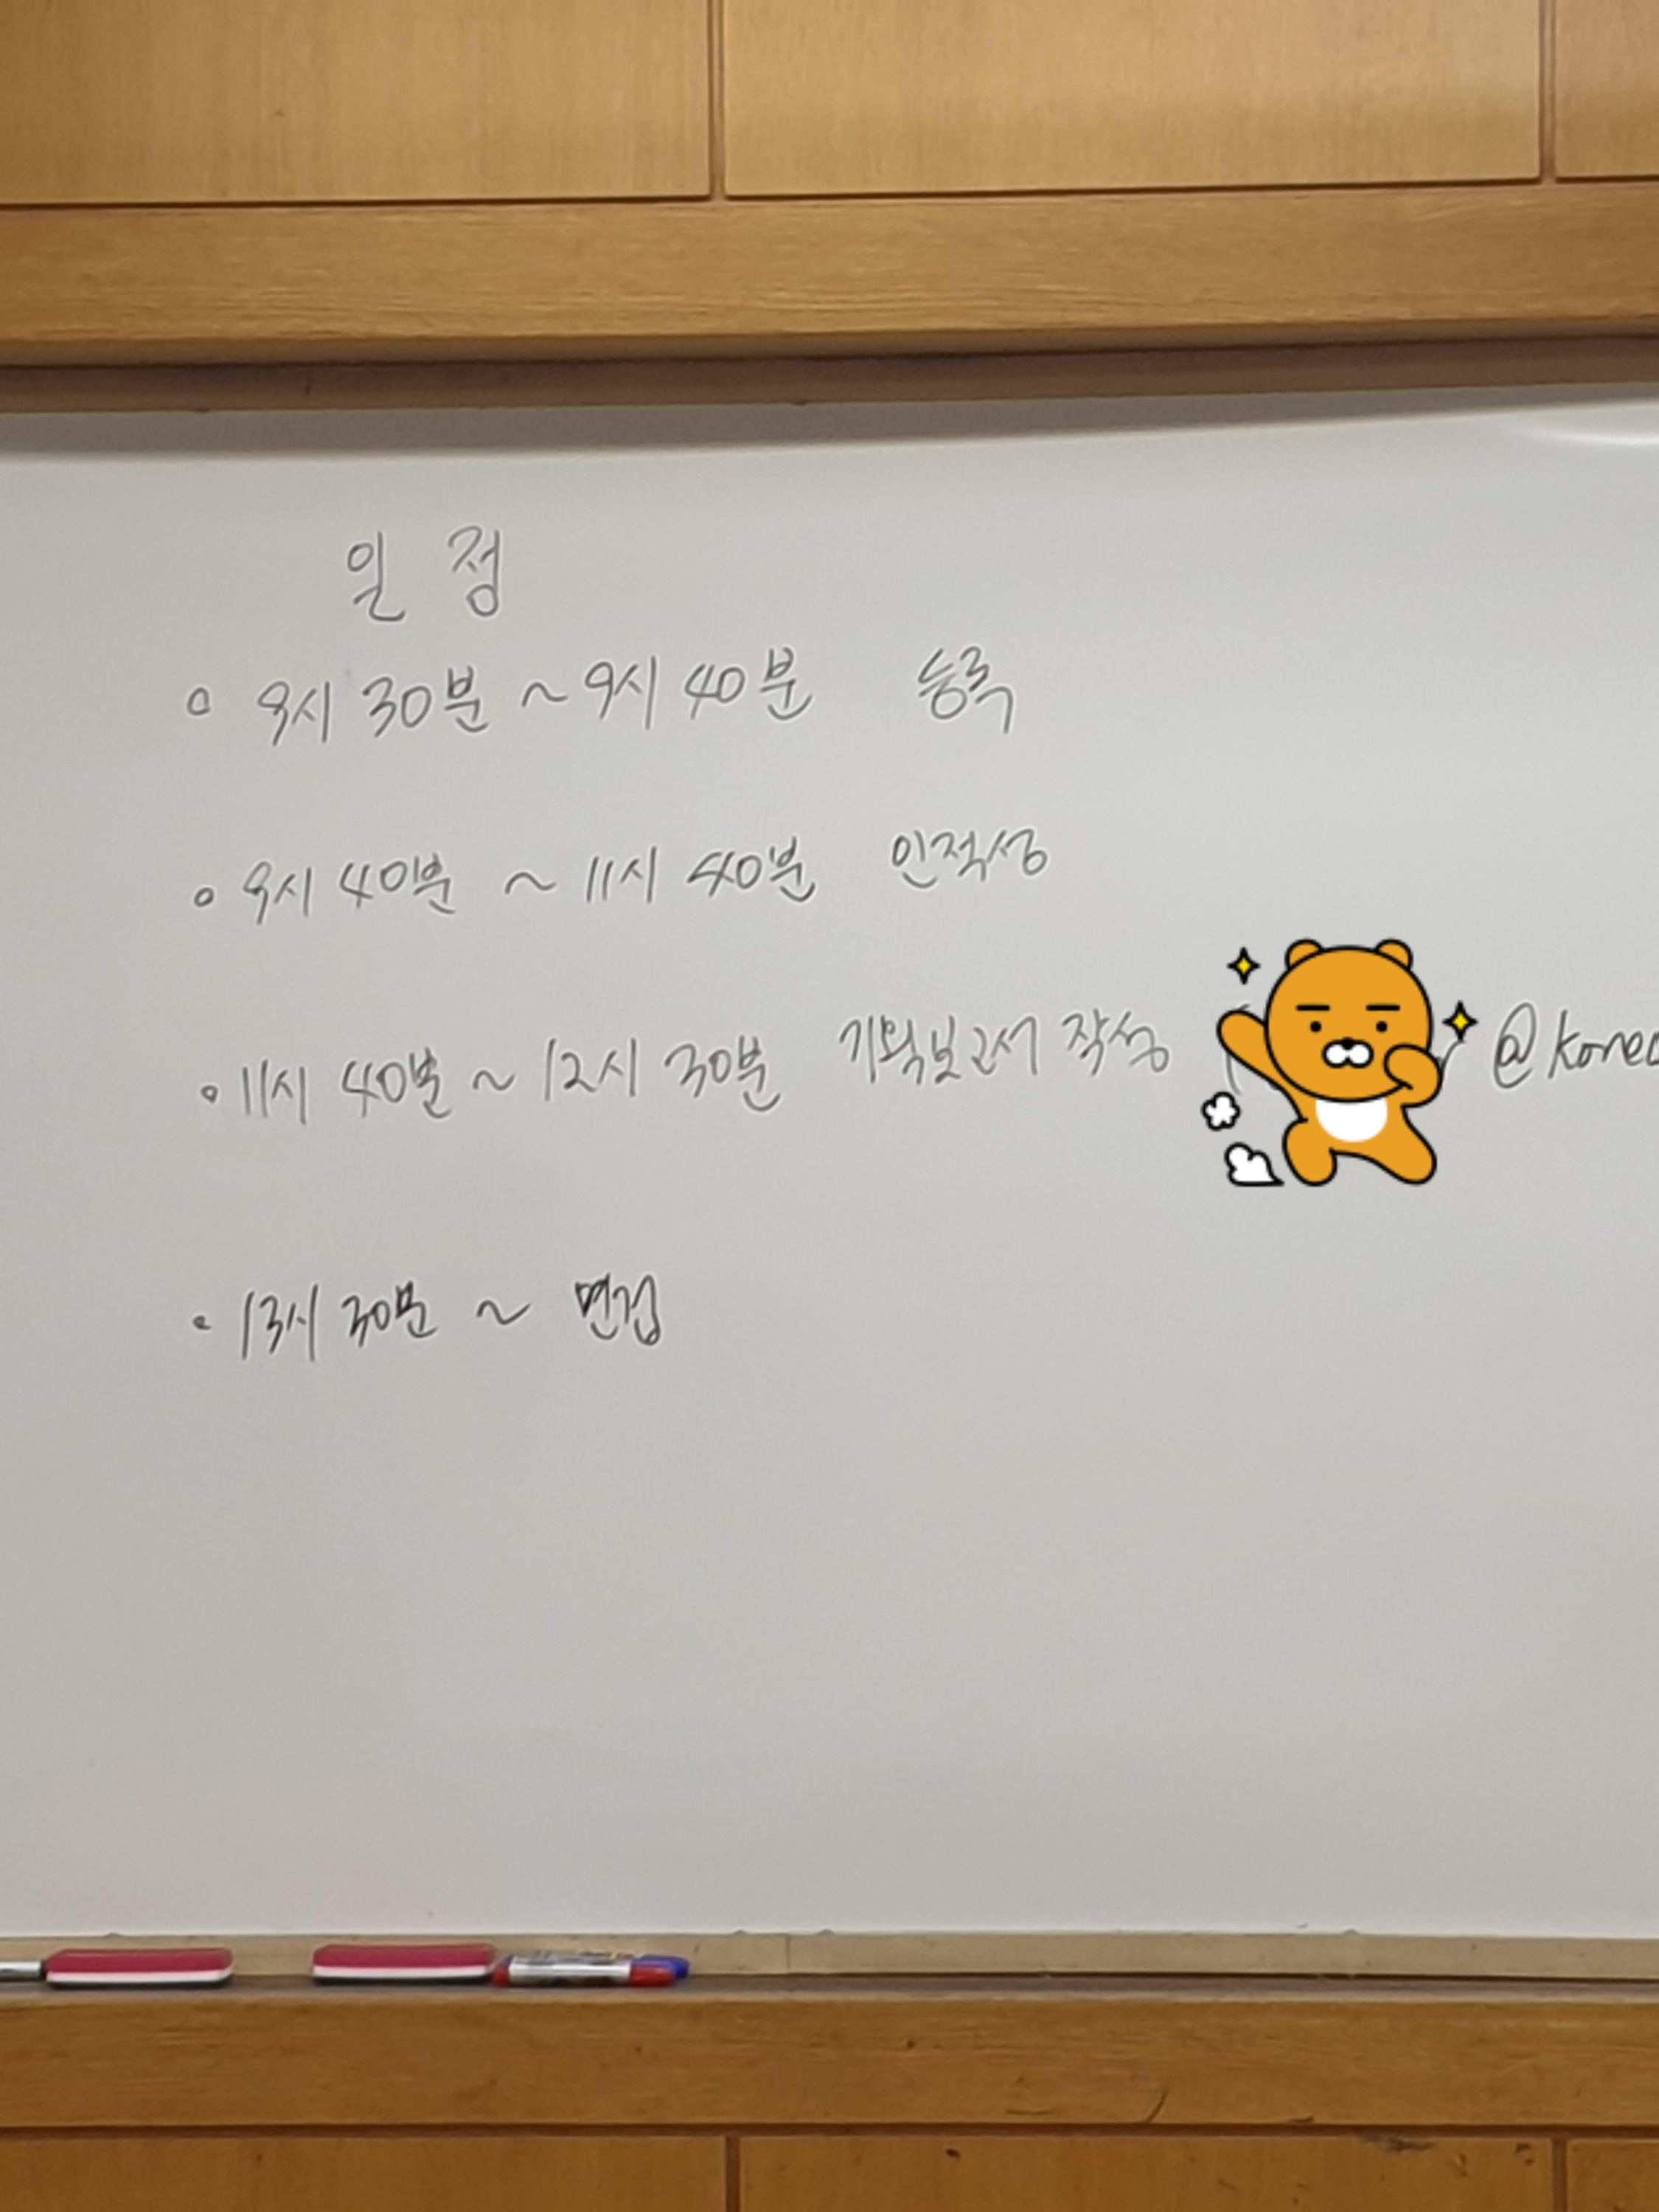 일 정
o 9시 30분 ~ 9시 40분 등록
o 9시 40분 ~ 11시 40분 인적성
• 11시 40분 ~ 12시 30분 기획보고서 작성 ( @korea
• 13시 30분 ~ 면접